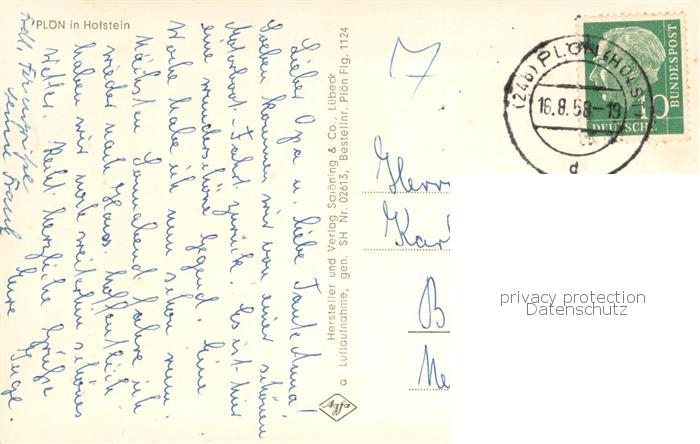 PLÖN in Holstein
Lieber Opa u. liebe Tante Anna!
Soeben kommen wir von einer schönen
Motorboot-Fahrt zurück. Es ist hier
eine wunderschöne Gegend. Eine
Woche habe ich nun schon rum.
Nächsten Sonnabend fahre ich
wieder nach Haus. Hoffentlich
haben wir noch weiterhin schönes
Wetter. Recht herzliche Grüße
Eure Inge.
Hersteller und Verlag Saiöning & Co., Lübeck
a Luftaufnahme, gen. SH Nr. 02613, Bestellnr. Plön Flg. 1124
Agfa
(24b) PLÖN (HOLST)
16.8.58-19
d
DEUTSCHE BUNDESPOST
10
Herrn
Karl
B
privacy protection
Datenschutz